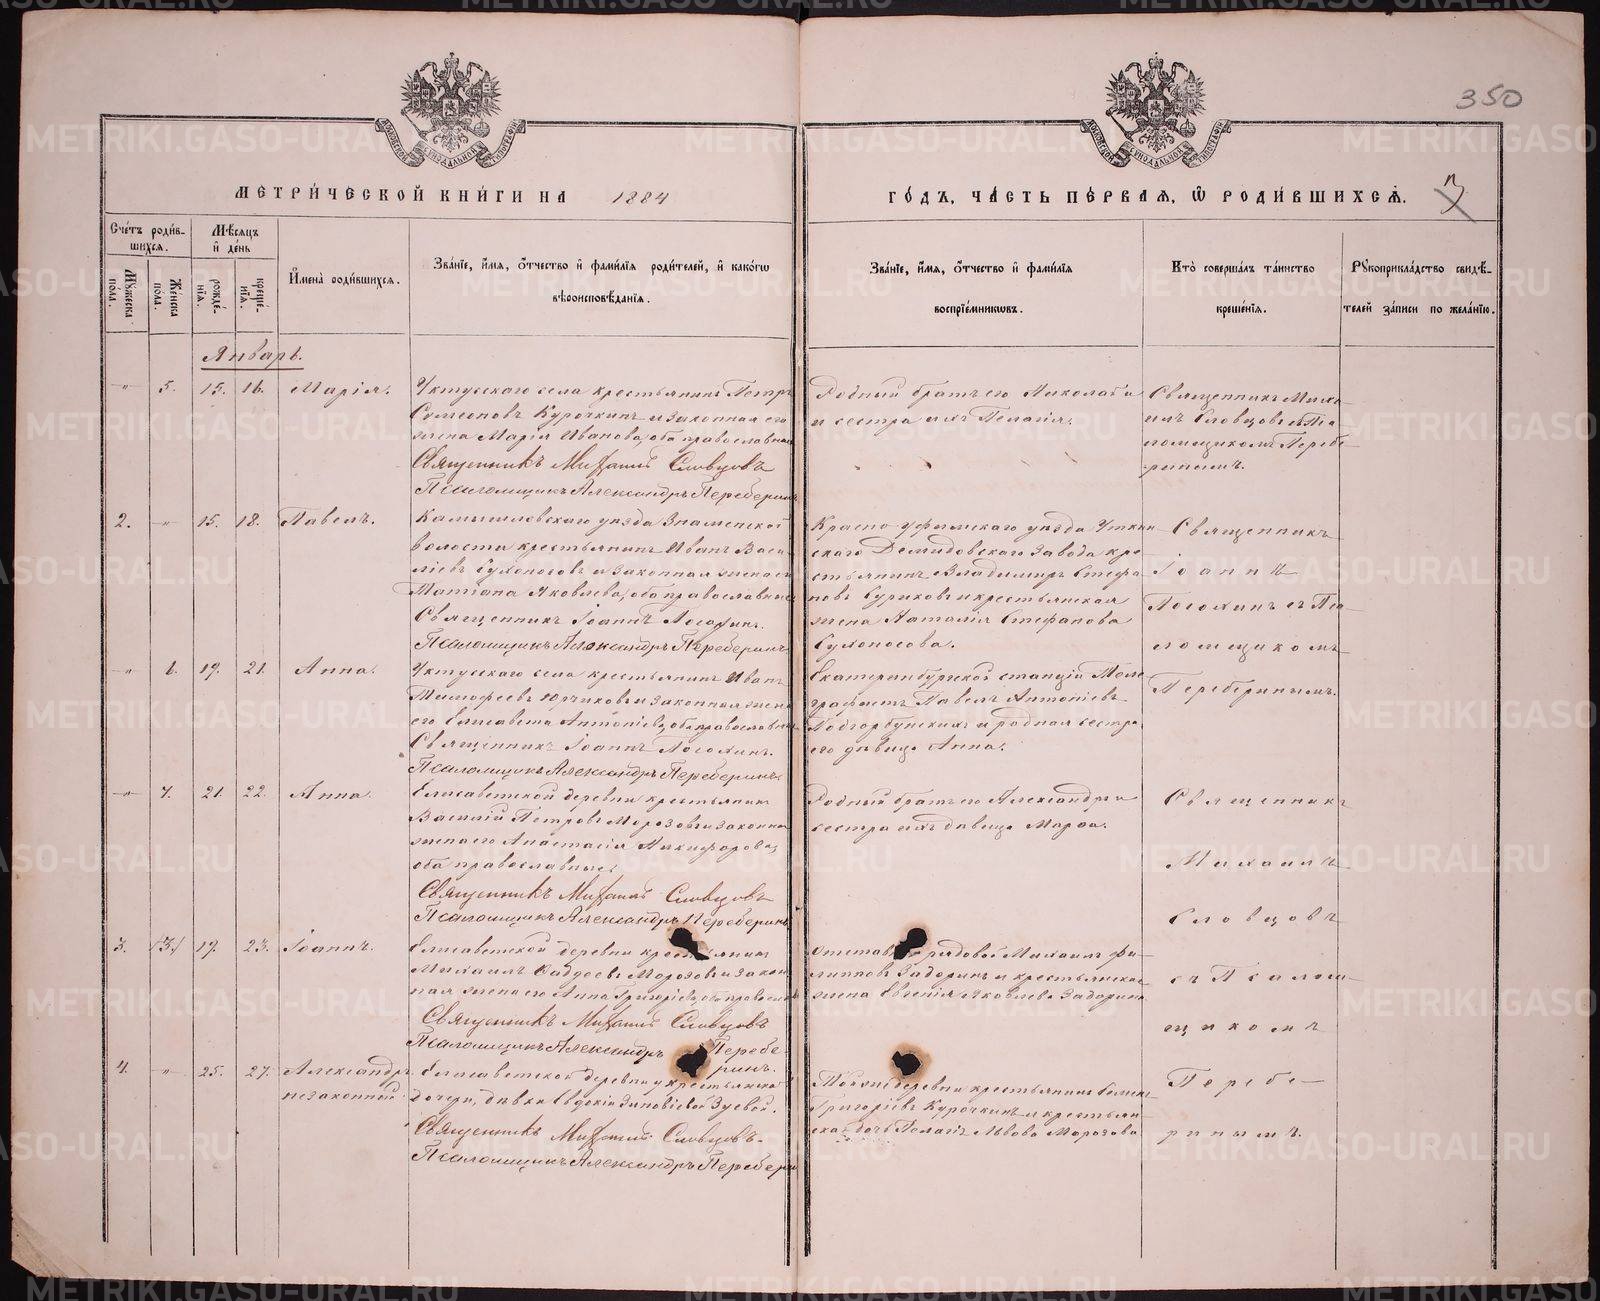 350
МЕТРИ́ЧЕСКОЙ КНИ́ГИ НА 1884
ГО́ДЪ, ЧА́СТЬ ПЕ́РВАЯ, Ѡ РОДИ́ВШИХСЯ.
3
Сче́тъ роди́в-
шихся.
Му́жеска по́ла.
Же́нска по́ла.
Мѣ́сяцъ
и҆ де́нь
рожде́-
нїя.
креще́-
нїя.
И҆мена̀ роди́вшихся.
Зва́нїе, и҆́мя, ѻ҆́тчество и҆ фами́лїя роди́телей, и҆ како́гѡ
вѣроисповѣ́данїя.
Зва́нїе, и҆́мя, ѻ҆́тчество и҆ фами́лїя
воспрїе́мникѡвъ.
Кто̀ соверша́лъ та́инство
креще́нїя.
Рукоприкла́дство свидѣ́-
телей за́писи по жела́нїю.
Январь.
-"- 5. 15. 16. Марія.
Уктусскаго села крестьянинъ Петръ
Симеоновъ Курочкинъ и законная его
жена Марія Иванова, оба православные
Священникъ Михаилъ Словцовъ
Псаломщикъ Александръ Переберинъ
Родный братъ его Николай и
и сестра ихъ Пелагія.
Священникъ Миха-
илъ Словцовъ съ Пса-
ломщикомъ Перебе-
ринымъ.
2. -"- 15. 18. Павелъ.
Камышловскаго уѣзда Знаменской
волости крестьянинъ Иванъ Васи-
ліевъ Сухоносовъ и законная жена его
Матіана Яковлева, оба православные
Священникъ Іоаннъ
Псаломщикъ Александръ Переберинъ
Красноуфимскаго уѣзда Уткин-
скаго Демидовскаго завода кре-
стьянинъ Владимиръ Стефа-
новъ Суриковъ и крестьянская
жена Наталія Стефанова
Сухоносова.
Священникъ
Іоаннъ
съ Пса-
ломщикомъ
Переберинымъ.
-"- 6. 19. 21. Анна.
Уктусскаго села крестьянинъ Иванъ
Тимофеевъ и законная жена
его Елисавета Антоніева, оба православные
Священникъ Іоаннъ
Псаломщикъ Александръ Переберинъ
Екатеринбургской станціи Теле-
графистъ Павелъ Антоніевъ
и родная сестра
его дѣвица Анна.
-"- 7. 21. 22. Анна.
Елисаветской деревни крестьянинъ
Василій Петровъ Морозовъ и законная
жена его Анастасія Никифорова,
оба православные.
Священникъ Михаилъ Словцовъ
Псаломщикъ Александръ Переберинъ
Родный братъ его Александръ и
сестра ихъ дѣвица Марѳа.
Священникъ
Михаилъ
Словцовъ
съ Псалом-
щикомъ
Перебе-
ринымъ.
3. (3.) 19. 23. Іоаннъ.
Елисаветской деревни крестьянинъ
Михаилъ Фаддеевъ Морозовъ и закон-
ная жена его Анна Григоріева, оба православные
Священникъ Михаилъ Словцовъ
Псаломщикъ Александръ Перебе-
ринъ.
рядовой Михаилъ Фи-
липповъ Задоринъ и крестьянская
жена Евгенія Яковлева Задорина
4. -"- 25. 27. Александръ
незаконной
Елисаветской деревни у крестьянской
дочери, дѣвки Евдокіи Зиновіевой Зуевой.
Священникъ Михаилъ Словцовъ
Псаломщикъ Александръ Переберинъ
деревни крестьянинъ
Григоріевъ Курочкинъ и крестьян-
ская дочь Пелагія Львова Морозова